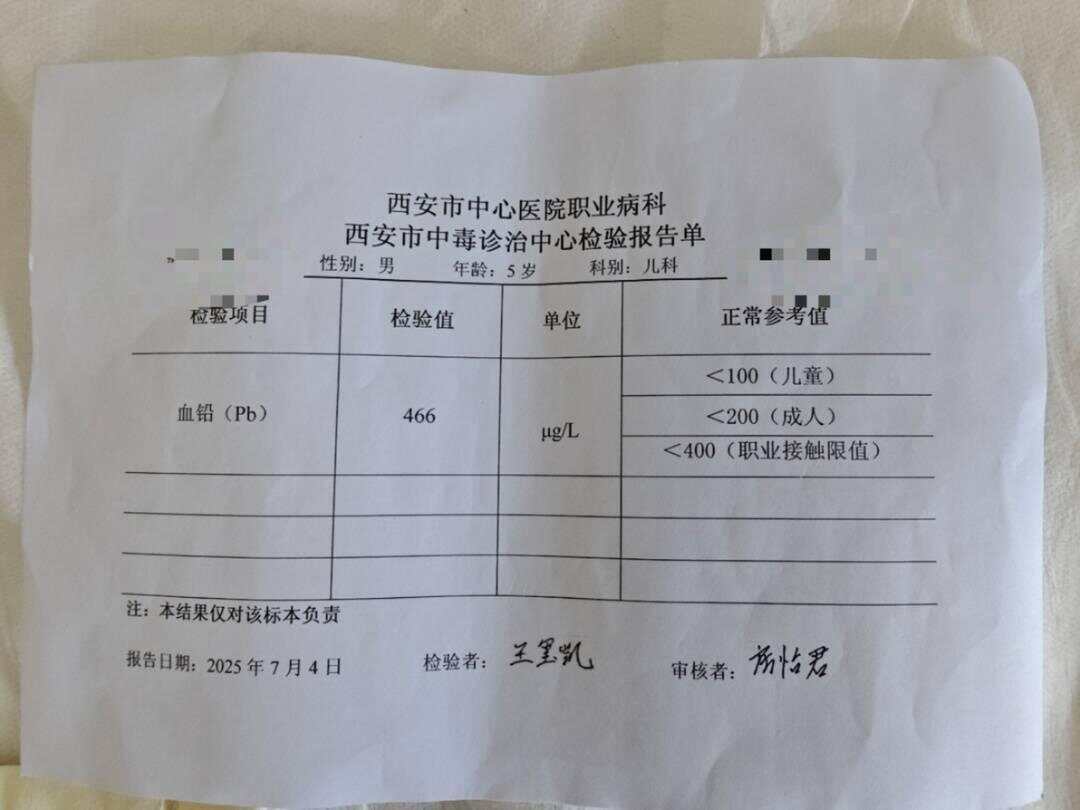 西安市中心医院职业病科
西安市中毒诊治中心检验报告单
性别：男 年龄：5岁 科别：儿科
检验项目 检验值 单位 正常参考值
血铅（Pb） 466 μg/L <100（儿童）
<200（成人）
<400（职业接触限值）
注：本结果仅对该标本负责
报告日期：2025年7月4日 检验者： 审核者：